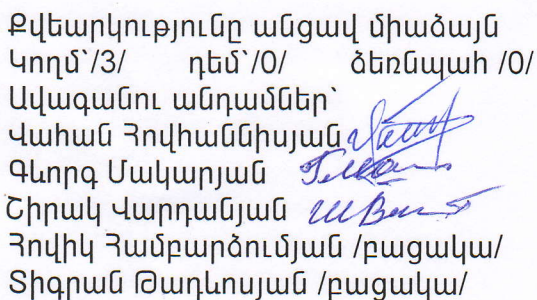 Քվեարկությունը անցավ միաձայն
Կողմ՝/3/ դեմ՝/0/ ձեռնպահ /0/
Ավագանու անդամներ՝
Վահան Հովհաննիսյան
Գևորգ Մակարյան
Շիրակ Վարդանյան
Հովիկ Համբարձումյան /բացակա/
Տիգրան Թադևոսյան /բացակա/